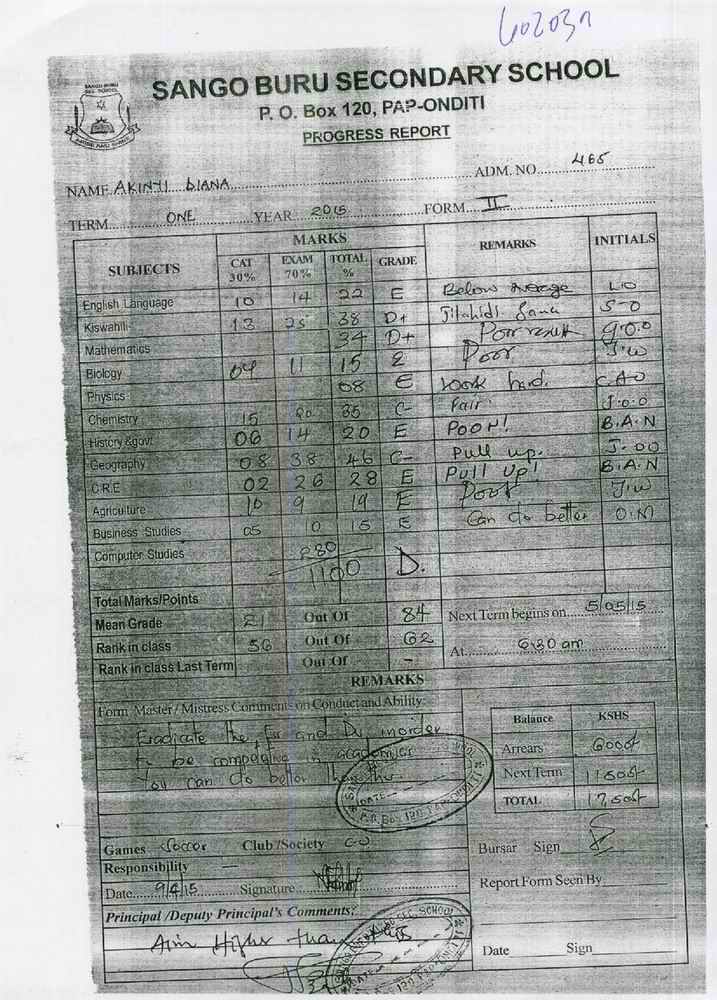 SANGO BURU SECONDARY SCHOOL
P. O. Box 120, PAP-ONDITI
PROGRESS REPORT
ADM. NO. 465
NAME AKINYI DIANA
TERM ONE YEAR 2015 FORM II
SUBJECTS MARKS REMARKS INITIALS
CAT 30% EXAM 70% TOTAL % GRADE
English Language 10 14 22 E Below average
Kiswahili 13 25 38 D+ Jitahidi Sana S-O
Mathematics 34 D+ Poor result G.O.O
Biology 04 11 15 E Poor J.W
Physics 08 E work hard. C.A.O
Chemistry 15 20 35 C- Fair J.O.O
History &govt 06 14 20 E POOR! B.A.N
Geography 08 38 46 C- Pull up. J.OO
C.R.E 02 26 28 E Pull Up! B.A.N
Agriculture 10 9 19 E Poor J.W
Business Studies 05 10 15 E Can do better O.M
Computer Studies 280
1100 D.
Total Marks/Points
Mean Grade 21 Out Of 84 Next Term begins on 5/05/15
Rank in class 56 Out Of 62 At 6:30 am
Rank in class Last Term Out Of -
REMARKS
Form Master / Mistress Comments on Conduct and Ability:
Eradicate the Es and Ds inorder
to be competitive in academics
You can do better than this.
Balance KSHS
Arrears 6000/-
Next Term 11505/-
TOTAL 17505/-
Games Soccer Club /Society CU
Responsibility —
Bursar Sign
Date 9/4/15 Signature
Report Form Seen By
Principal /Deputy Principal's Comments:
Aim Higher than this
Date Sign